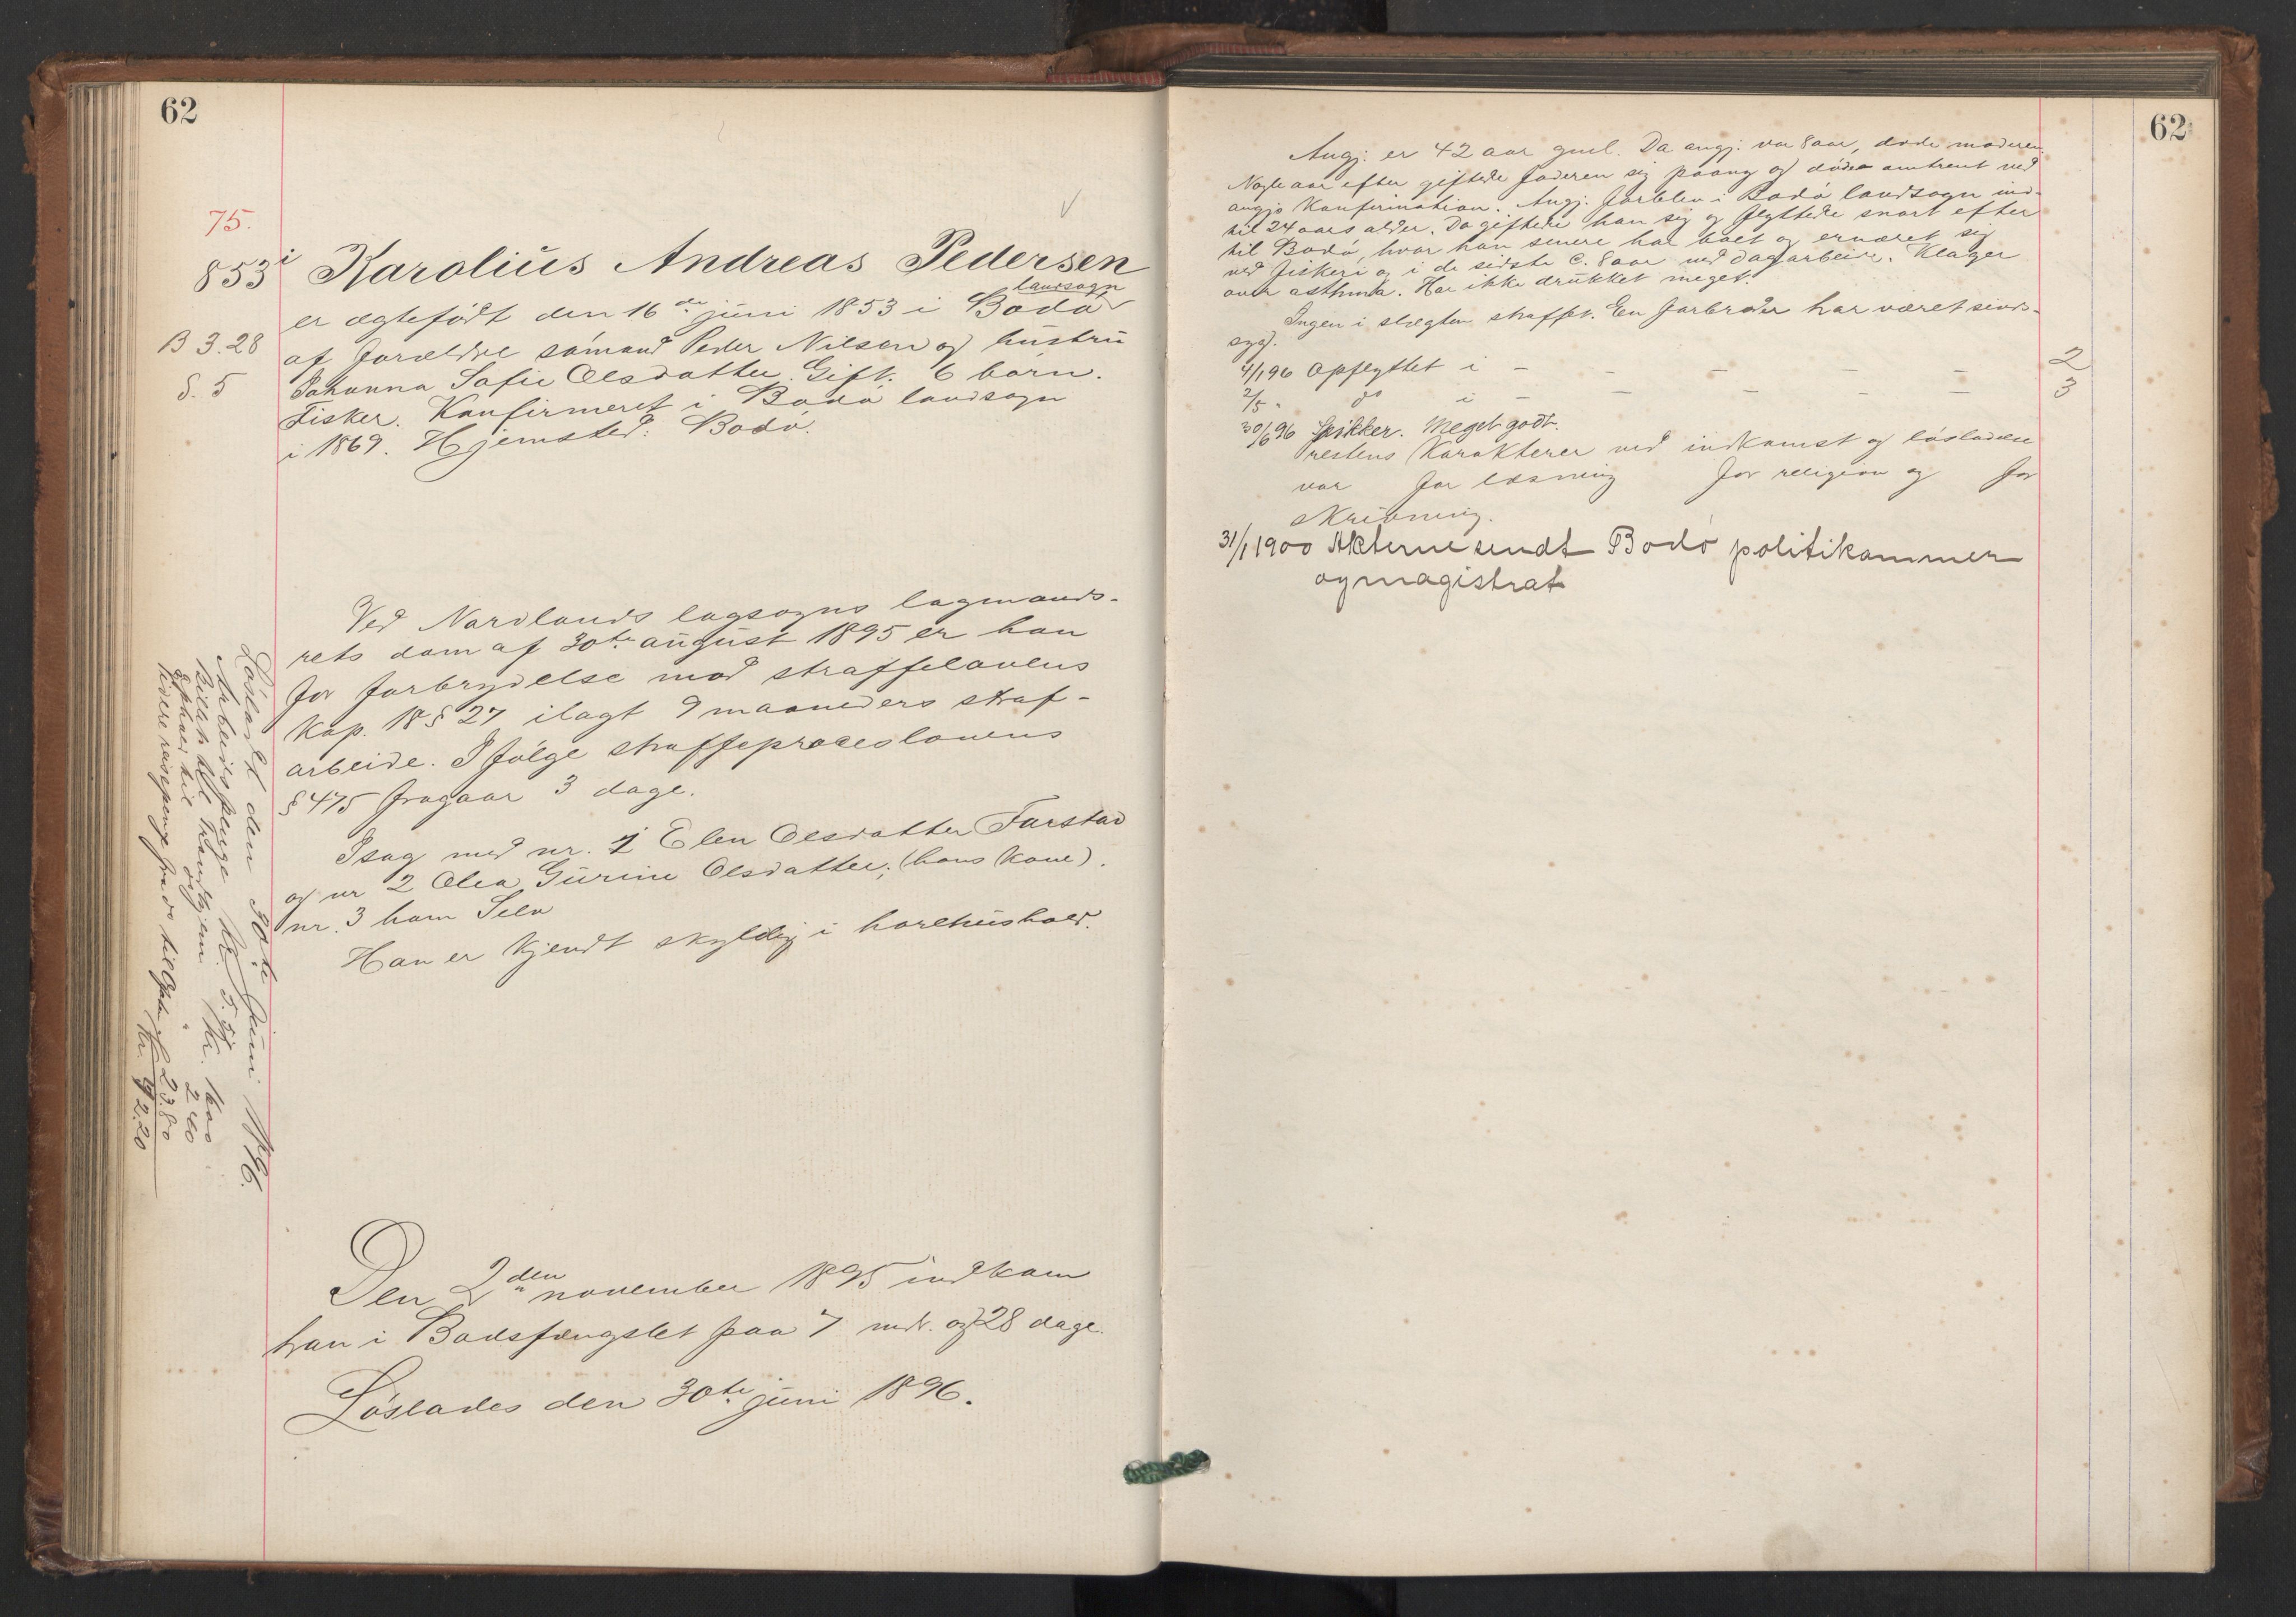 62
75.
853 i Karolius Andreas Pedersen
er ægtefødt den 16de juni 1853 i Bodø landsogn
B 3.28
af forældre sømand Peder Nilsen og hustru
S. 5
Johanna Sofie Olsdatter. Gift. 6 børn.
Fisker. Konfirmeret i Bodø landsogn
i 1869. Hjemsted: Bodø.
Ved Nordlands lagsogns lagmands-
rets dom af 30te august 1895 er han
for forbrydelse mod straffelovens
Kap. 18 § 27 ilagt 9 maaneders straf-
arbeide. Ifølge straffeproceslovens
§ 475 fragaar 3 dage.
I sag med nr. 1 Elen Olsdatter Farstad
og nr 2 Olea Gurine Olsdatter; (hans kone).
nr. 3 ham Selv
Han er kjendt skyldig i horehushold.
Løsladt den 30te juni 1896.
Arbeidspenge kr.
Billet til Trondhjem kr.
Ophold til do " 2.40
Videre reisepenge fra do til Bodø " 23.80
kr. 42.20
Den 2den november 1895 indkom
han i Bodsfængslet paa 7 mdr. og 28 dage.
Løslades den 30te juni 1896.
62
Angj. er 42 aar gml. Da angj. var 8 aar, døde moderen.
Nogle aar efter giftede faderen sig paany og døde omtrent ved
angjs Konfirmation. Angj. forblev i Bodø landsogn ind-
til 24 aars alder. Da giftede han sig og flyttede snart efter
til Bodø, hvor han senere har boet og ernæret sig
ved fiskeri og i de sidste c. 8 aar ved dagarbeide. Klager
over asthma. Har ikke drukket meget.
Ingen i slægten straffet. En farbroder har været sinds-
syg.
4/1 96 Opflyttet i - - - - - 2
2/5 - do i - - - - - 3
30/6 96 Sikker. Meget godt.
Prestens Karakterer ved indkomst og løsladelse
var for læsning for religion og for
skrivning.
31/1 1900 Akterne sendt Bodø politikammer
og magistrat